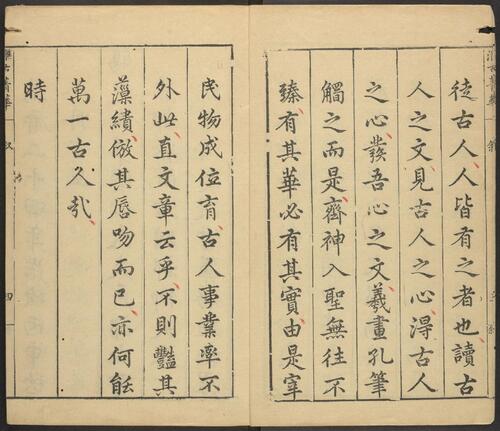 徒古人人皆有之者也讀古
人之文見古人之心得古人
之心發吾心之文羲畫孔筆
觸之而是齊神入聖無往不
臻有其華必有其實由是宰
民物成位育古人事業率不
外此直文章云乎不則豔其
藻繢倣其唇吻而已亦何能
萬一古久哉
時